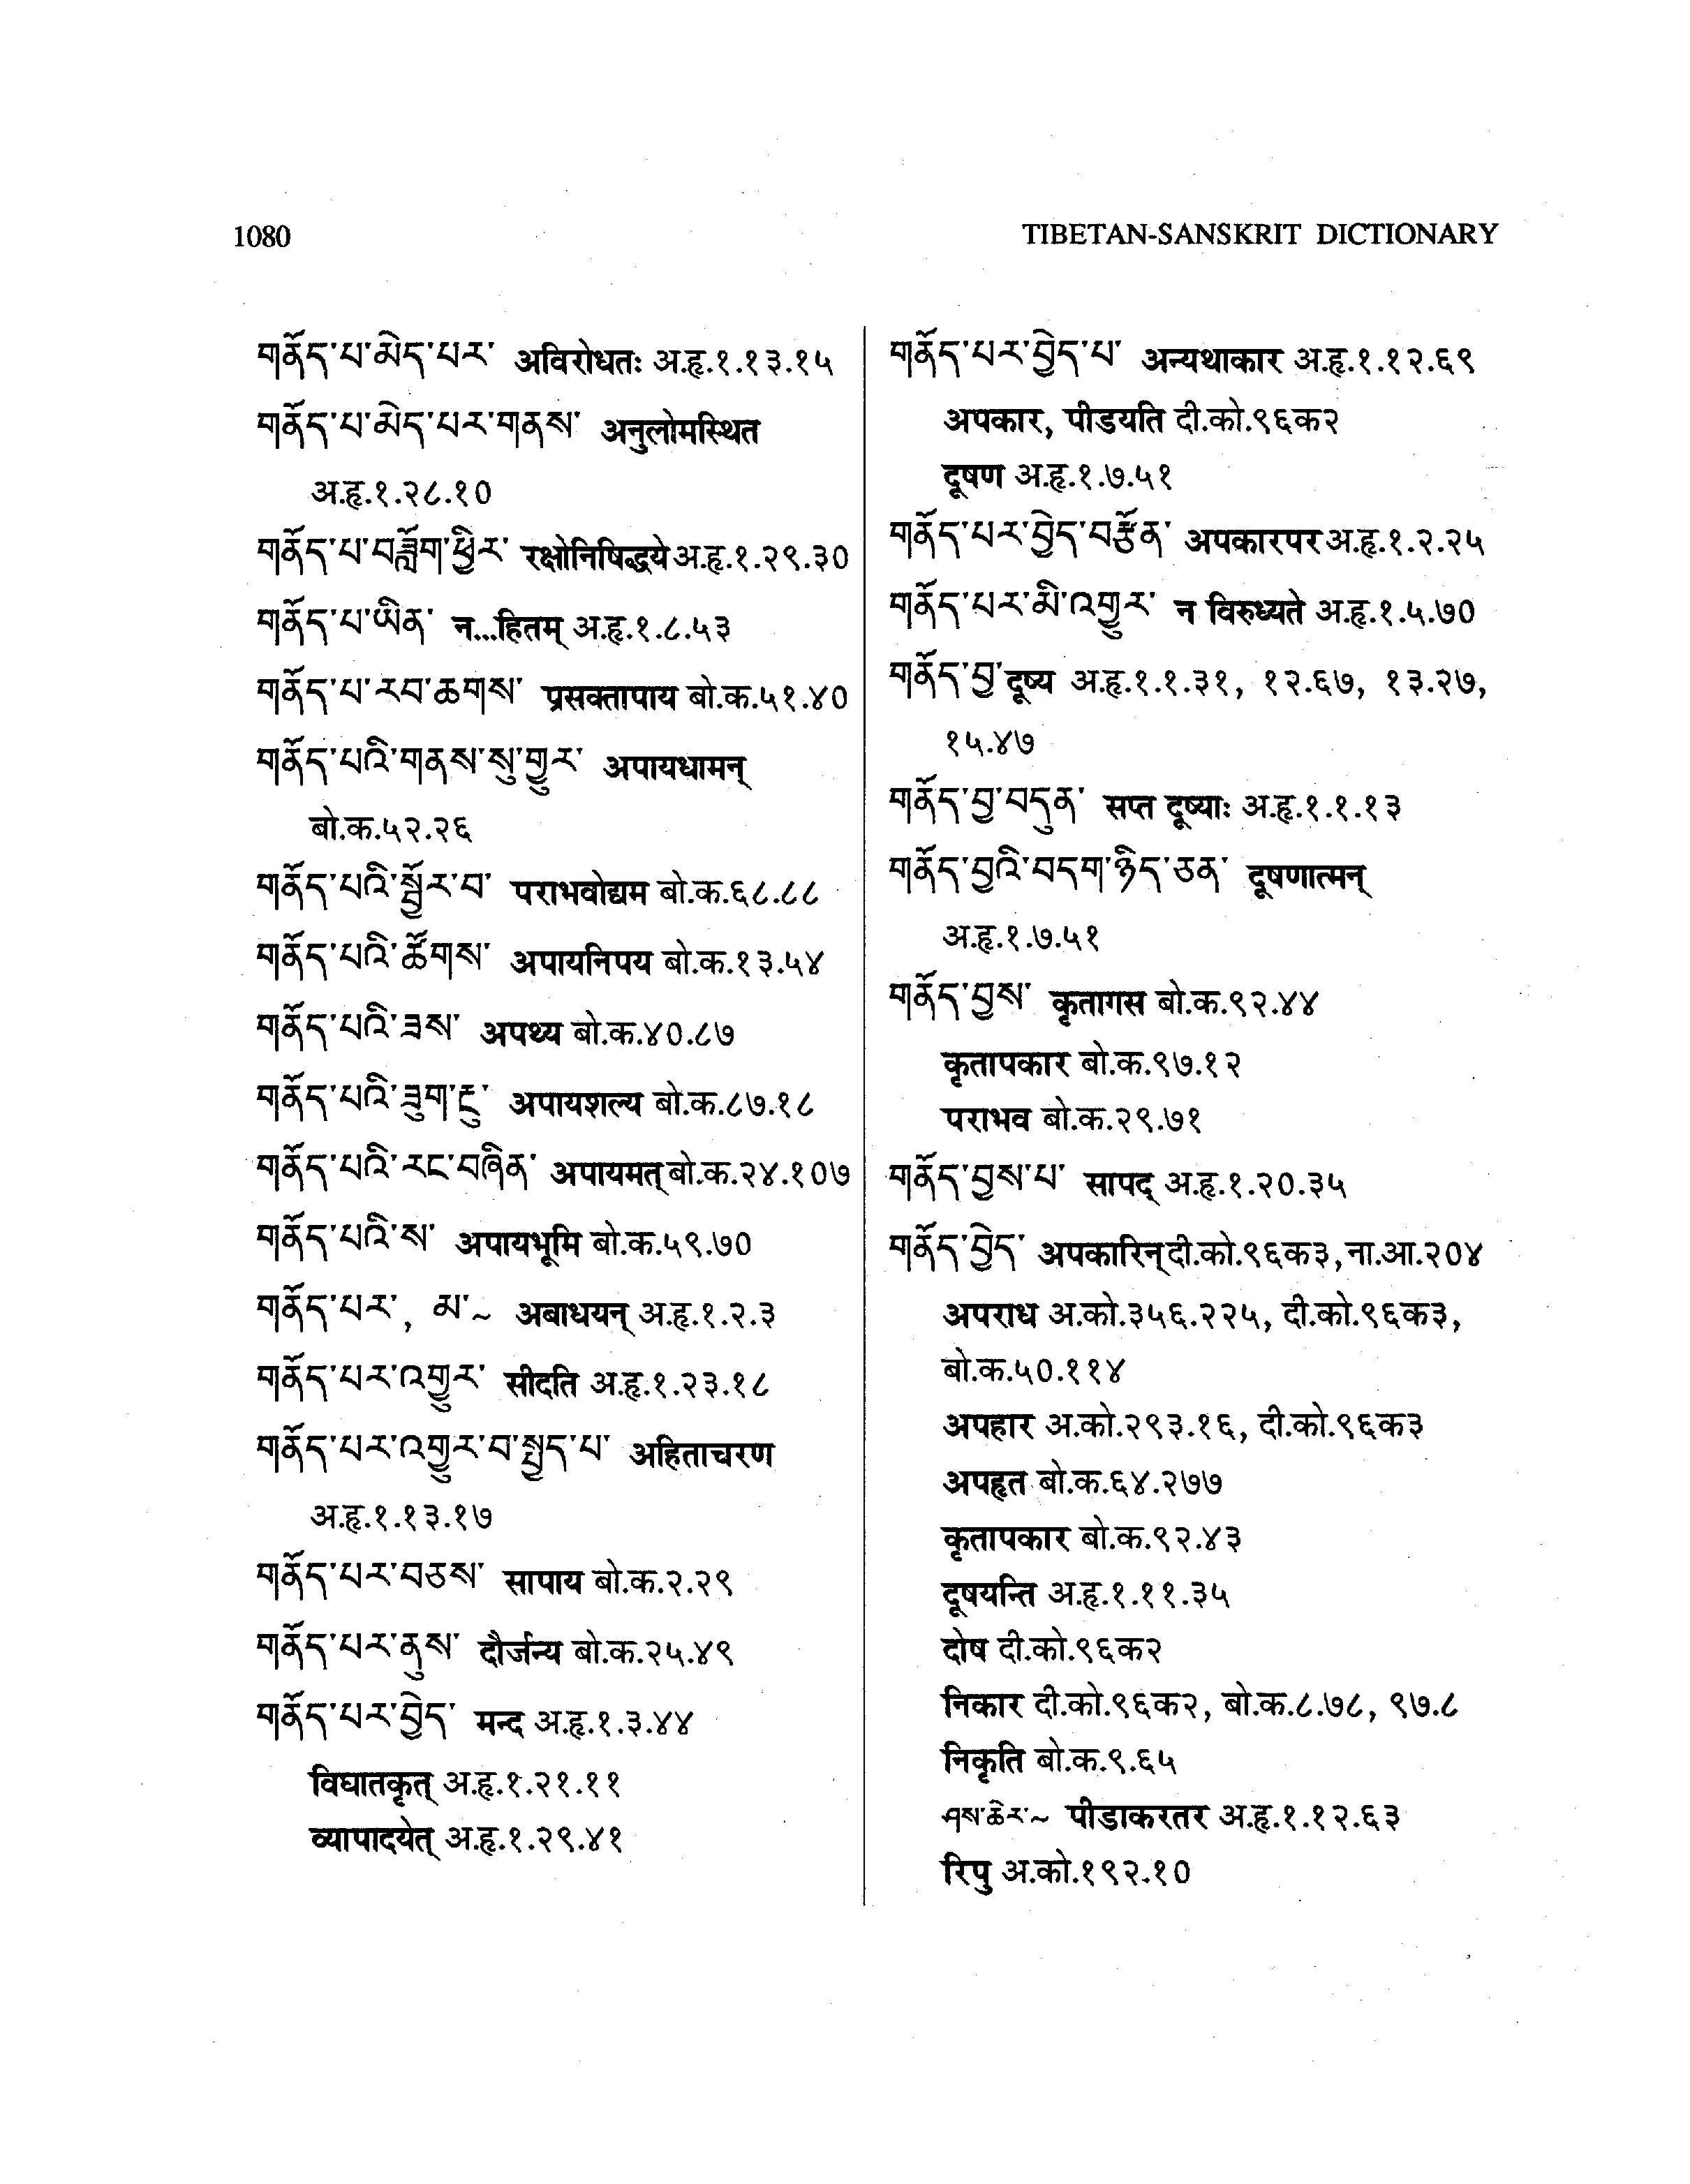 1080
TIBETAN-SANSKRIT DICTIONARY
གནོད་པ་མེད་པར་ अविरोधतः अ.हृ.१.१३.१५
གནོད་པ་མེད་པར་གནས་ अनुलोमस्थित
अ.हृ.१.२८.१०
གནོད་པ་བཟློག་ཕྱིར་ रक्षोनिषिद्धये अ.हृ.१.२९.३०
གནོད་པ་ཡིན་ न...हितम् अ.हृ.१.८.५३
གནོད་པ་རབ་ཆགས་ प्रसक्तापाय बो.क.५१.४०
གནོད་པའི་གནས་སུ་གྱུར་ अपायधामन्
बो.क.५२.२६
གནོད་པའི་སྦྱོར་བ་ पराभवोद्यम बो.क.६८.८८
གནོད་པའི་ཚོགས་ अपायनिपय बो.क.१३.५४
གནོད་པའི་ཟས་ अपथ्य बो.क.४०.८७
གནོད་པའི་ཟུག་རྔུ་ अपायशल्य बो.क.८७.१८
གནོད་པའི་རང་བཞིན་ अपायमत् बो.क.२४.१०७
གནོད་པའི་ས་ अपायभूमि बो.क.५९.७०
གནོད་པར་, མ་~ अबाधयन् अ.हृ.१.२.३
གནོད་པར་འགྱུར་ सीदति अ.हृ.१.२३.१८
གནོད་པར་འགྱུར་བ་སྤྱད་པ་ अहिताचरण
अ.हृ.१.१३.१७
གནོད་པར་བཅས་ सापाय बो.क.२.२९
གནོད་པར་ནུས་ दौर्जन्य बो.क.२५.४९
གནོད་པར་བྱེད་ मन्द अ.हृ.१.३.४४
विघातकृत् अ.हृ.१.२१.११
व्यापादयेत् अ.हृ.१.२९.४१
གནོད་པར་བྱེད་པ་ अन्यथाकार अ.हृ.१.१२.६९
अपकार, पीडयति दी.को.९६क२
दूषण अ.हृ.१.७.५१
གནོད་པར་བྱེད་བརྩོན་ अपकारपर अ.हृ.१.२.२५
གནོད་པར་མི་འགྱུར་ न विरुध्यते अ.हृ.१.५.७०
གནོད་བྱ་ दूष्य अ.हृ.१.१.३१, १२.६७, १३.२७,
१५.४७
གནོད་བྱ་བདུན་ सप्त दूष्याः अ.हृ.१.१.१३
གནོད་བྱའི་བདག་ཉིད་ཅན་ दूषणात्मन्
अ.हृ.१.७.५१
གནོད་བྱས་ कृतागस बो.क.९२.४४
कृतापकार बो.क.९७.१२
पराभव बो.क.२९.७१
གནོད་བྱས་པ་ सापद् अ.हृ.१.२०.३५
གནོད་བྱེད་ अपकारिन् दी.को.९६क३, ना.आ.२०४
अपराध अ.को.३५६.२२५, दी.को.९६क३,
बो.क.५०.११४
अपहार अ.को.२९३.१६, दी.को.९६क३
अपहृत बो.क.६४.२७७
कृतापकार बो.क.९२.४३
दूषयन्ति अ.हृ.१.११.३५
दोष दी.को.९६क२
निकार दी.को.९६क२, बो.क.८.७८, ९७.८
निकृति बो.क.९.६५
ཤས་ཆེར་~ पीडाकरतर अ.हृ.१.१२.६३
रिपु अ.को.१९२.१०